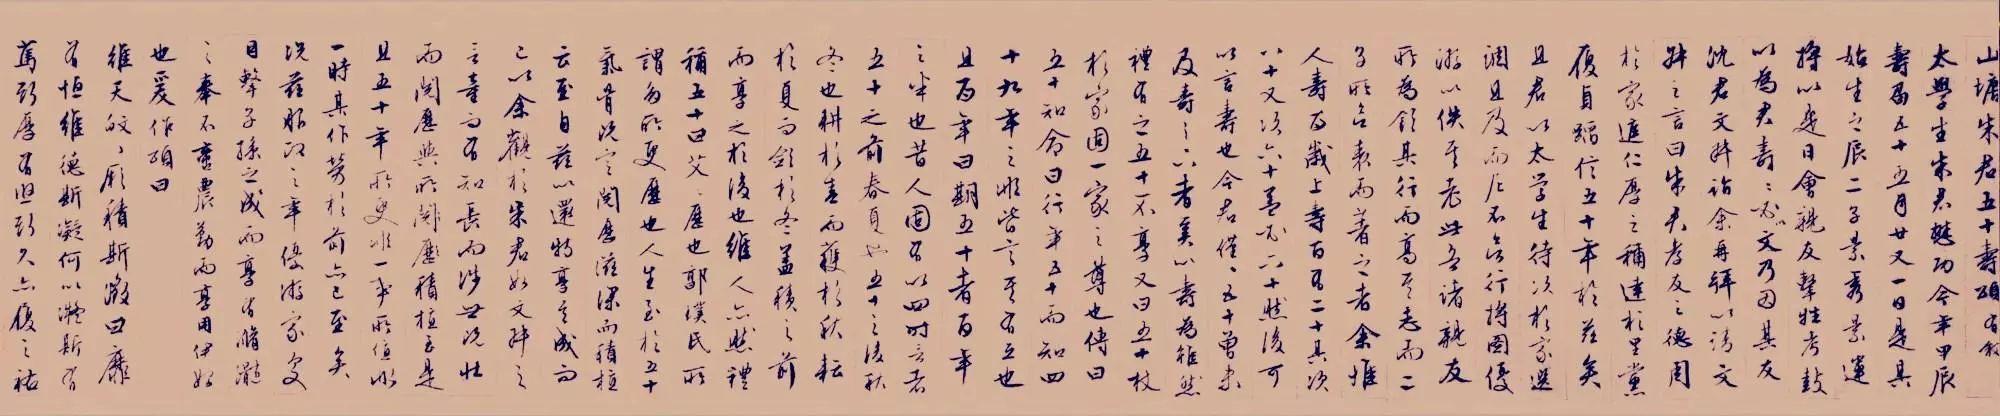 山塘朱君五十壽頌有敘
太學生朱君懋功今年甲辰
壽屆五十五月廿又一日是其
始生之辰二子景秀景運
將以是日會親友擊牲考鼓
以為君壽壽必文乃因其友
沈君文辉詣余再拜以請文
辉之言曰朱君孝友之德周
於家庭仁厚之稱達於里黨
履貞蹈信五十年於茲矣
且君以太学生待次於家選
調且及而凡不行將圖優
游以佚其老此吾諸親友
所為領其行而高其志而二
子所之者余惟
人壽百歲上壽百有二十其次
八十又次六十蓋至六十然後可
以言壽也今君僅五十曾未
及壽之下者奚以壽為雖然
禮有之五十不又曰五十杖
於家固一家之尊也傳曰
五十知命曰行年五十而知四
十九年之非皆言其有五也
且百年曰期五十者百年
之半也昔人固有以四時言者
五十之前春夏也五十之後秋
冬也耕於春而穫於秋耘
於夏而斂於冬蓋積之前
而享之於後也維人亦然禮
稱五十曰艾艾歷也郭璞氏所
謂多所更歷也人生至於五十
氣骨既定閱歷滋深而積植
云至自茲以還特享其成而
已以余觀於朱君如文辉之
言童而有知長而涉世既壯
而閱歷與所閱歷積植至是
且五十年所更非一事所值非
一時其作勞於前亦已至矣
既茲服政之年優游家食
目擊子孫之成而享有脩瀡
之奉不啻農勤而享用伊始
也爰作頌曰
維天皎皎所積斯徵曰靡
有恒維德斯凝何以凝斯有
篤斯厚有但斯久亦復之祜